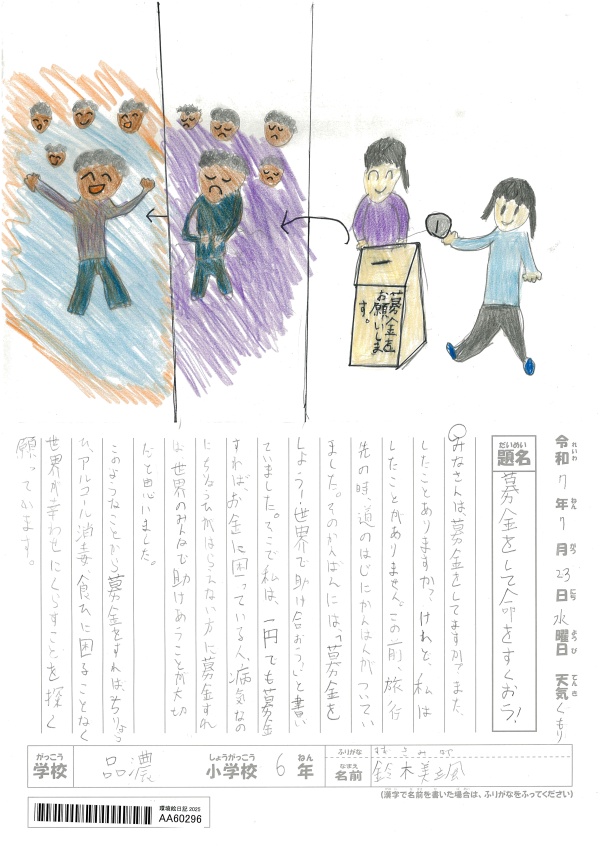 募金を
お願いしま
す。
令和7年7月23日水曜日 天気くもり
れいわ ねん がつ にち ようび てんき
だいめい
題名
募金をして命をすくおう!
みなさんは、募金をしてますか?また、
したことありますか?けれど、私は
したことがありません。この前、旅行
先の時、道のはじにかんばんがついてい
ました。そのかんばんには、「募金を
しよう!世界で助け合おう」と書い
ていました。そこで私は、一円でも募金
すれば、お金に困っている人、病気なの
にちりょうがはらえない方に募金すれ
ば世界のみんなで助けあうことが大切
だと思いました。
このようなことから募金をすれば、ちりょう
ひ、アルコール消毒、食べに困ることなく
世界が幸わせにくらすことを探く
願ってかます。
がっこう しょうがっこう ねん
学校 品濃 小学校 6年
ふりがな
なまえ
名前 鈴木美颯
(漢字で名前を書いた場合は、ふりがなをふってください)
環境絵日記 2025
AA60296